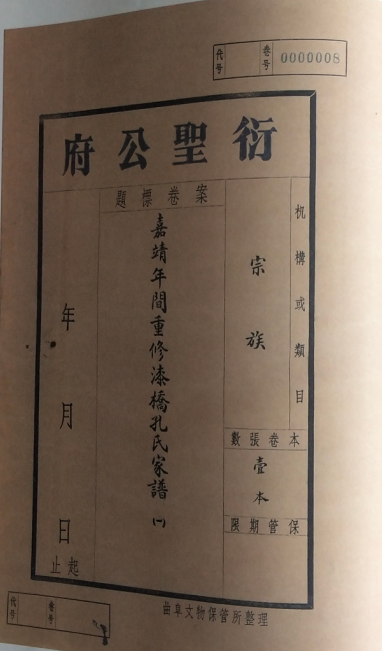 代号 卷号 0000008
衍聖公府
机構或類目
宗族
本卷張數
壹本
保管期限
案卷標題
嘉靖年間重修漆橋孔氏家譜(一)
年月日
起止
曲阜文物保管所整理
代号 卷号